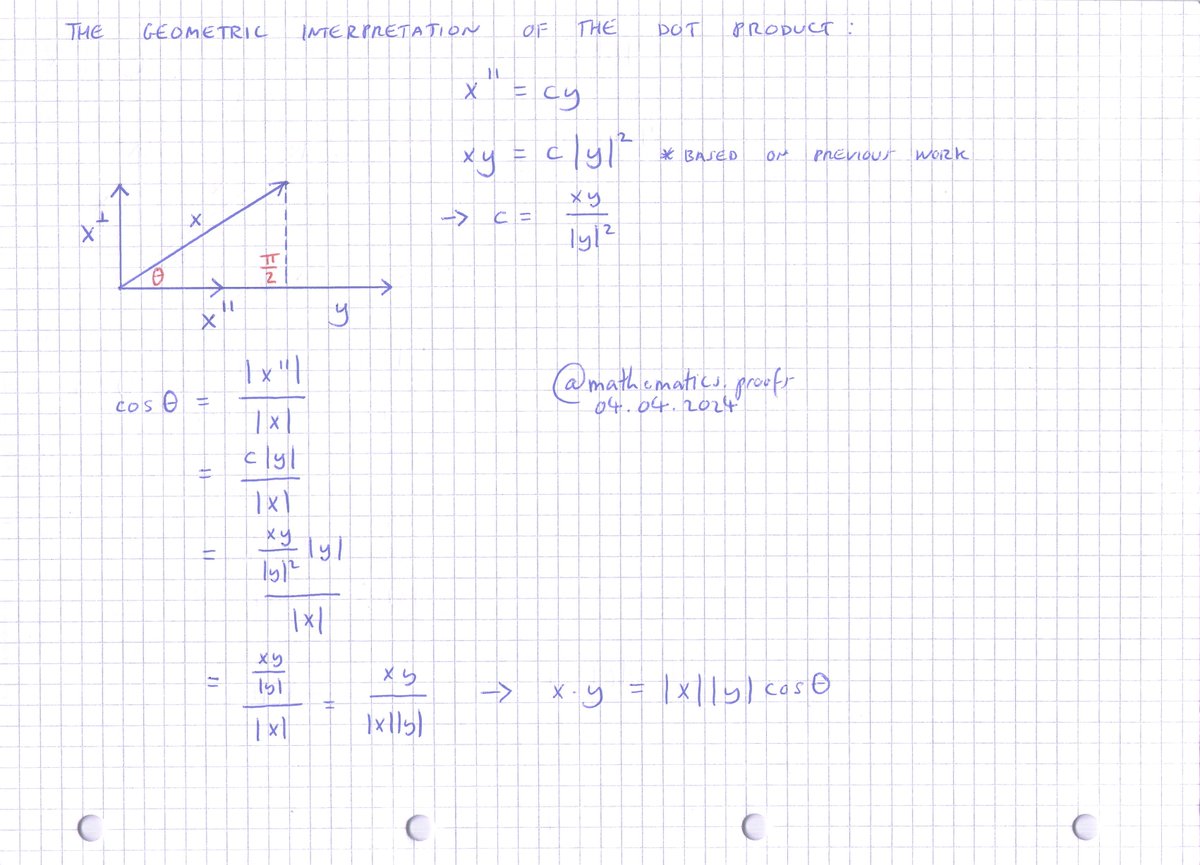 THE GEOMETRIC INTERPRETATION OF THE DOT PRODUCT:
x'' = cy
xy = c|y|² * BASED ON PREVIOUS WORK
→ c = xy/|y|²
x⊥
x
θ
π/2
x''
y
cos θ = |x''|/|x|
= c|y|/|x|
= (xy/|y|² |y|)/|x|
= (xy/|y|)/|x| = xy/|x||y| → x·y = |x||y| cos θ
@mathematics.proofs
04.04.2024